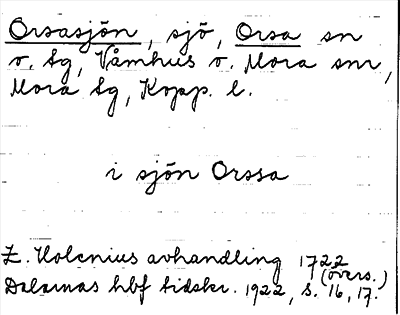 Orsasjön, sjö, Orsa sn
o. tg, Våmhus o. Mora snr,
Mora tg, Kopp. l.
i sjön Orssa
Z. Holenius avhandling 1722
(övers.)
Dalarnas hbf tidskr. 1922, s. 16, 17.